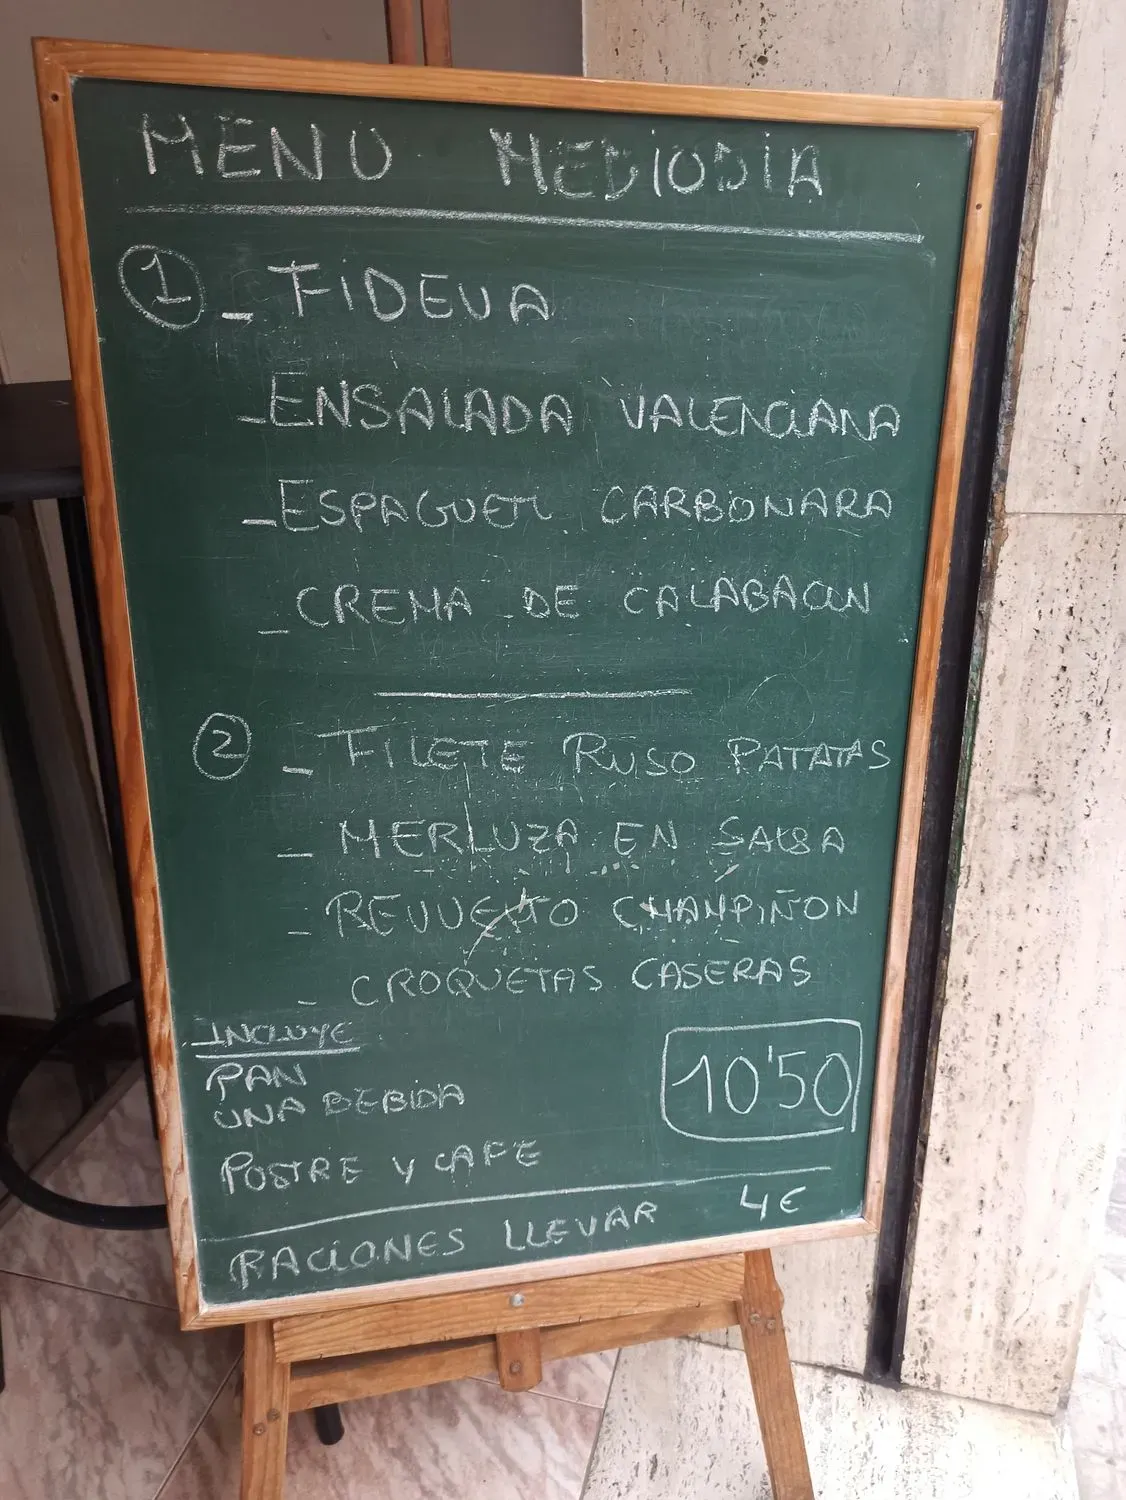 MENU MEDIODIA
1 - FIDEUA
- ENSALADA VALENCIANA
- ESPAGUETI CARBONARA
- CREMA DE CALABACIN
2 - FILETE RUSO PATATAS
- MERLUZA EN SALSA
- REVUELTO CHAMPIÑON
- CROQUETAS CASERAS
INCLUYE
PAN
UNA BEBIDA
10'50
POSTRE Y CAFE
RACIONES LLEVAR 4€